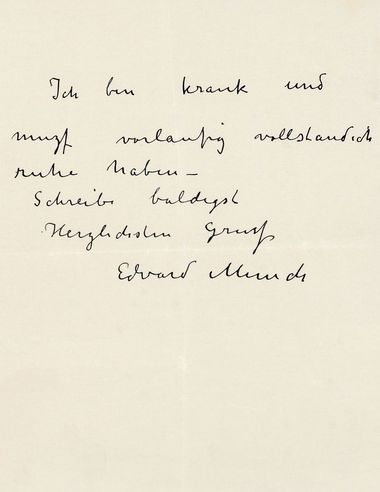 Ich bin krank und
muss vorlaufig vollstandich
ruhe haben –
Schreibe baldigst
Herzlichsten Gruss
Edvard Munch